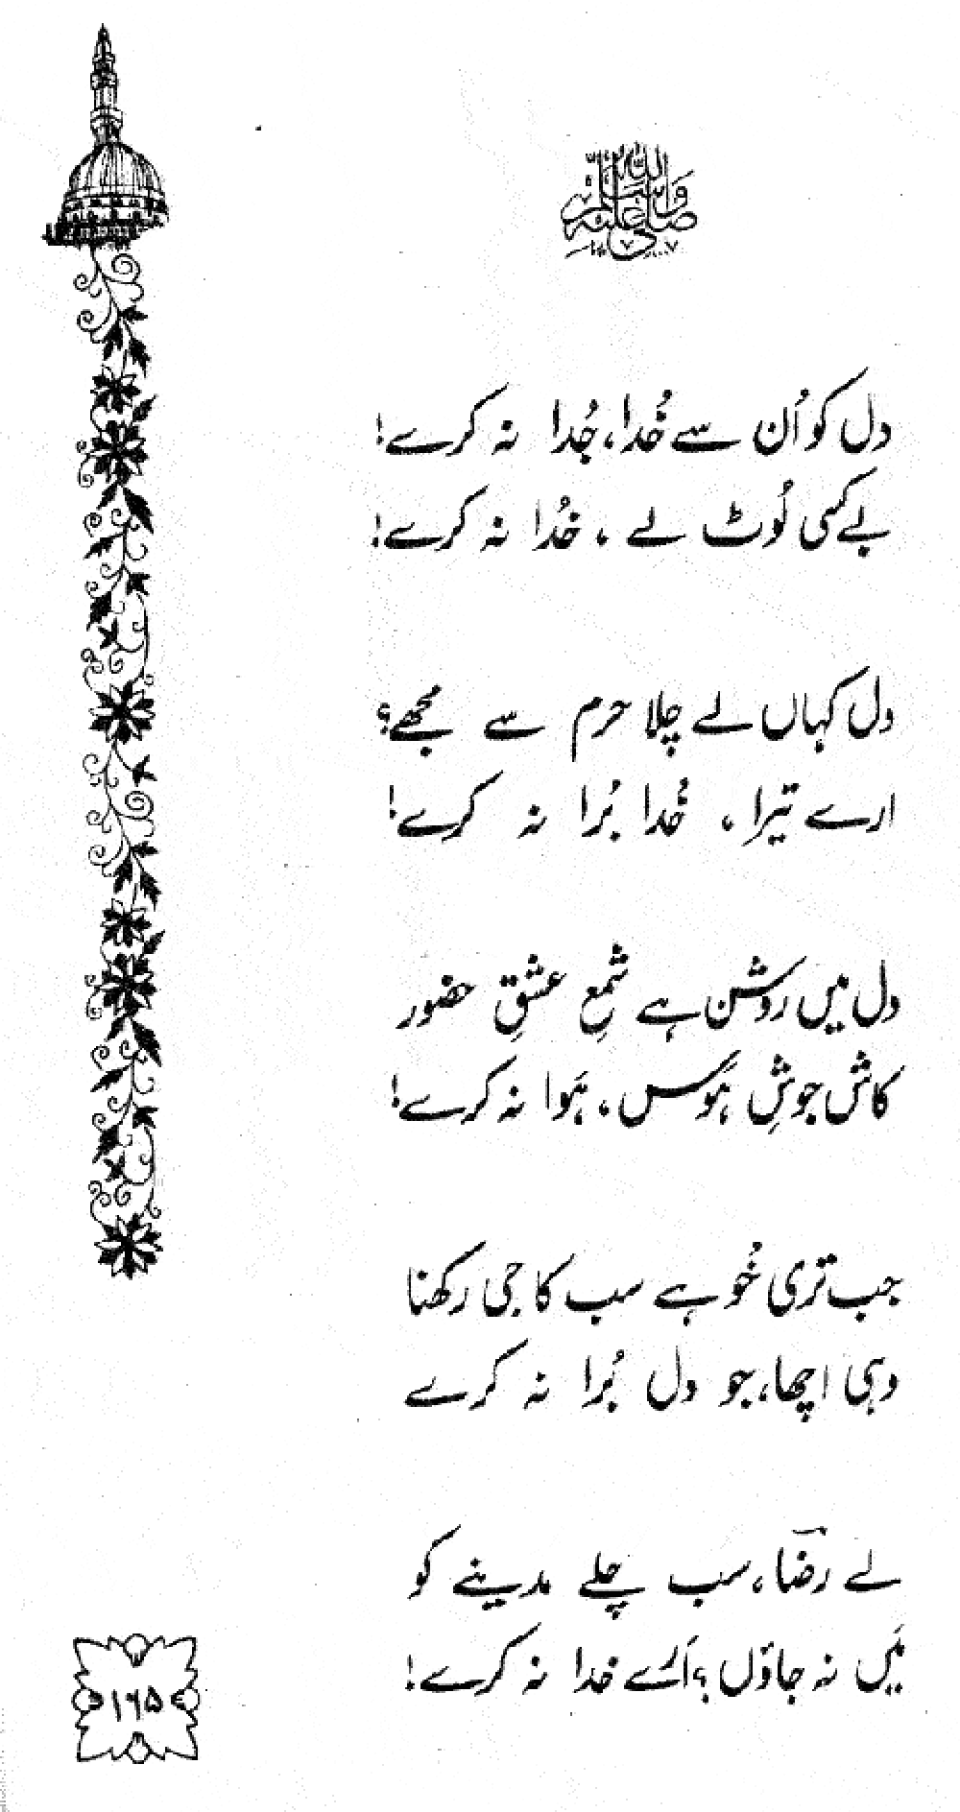 صلی اللہ علیہ وسلم
دل کو اُن سے خُدا، جُدا نہ کرے!
بے کسی لُوٹ لے ، خدُا نہ کرے!
دل کہاں لے چلا حرم سے مجھے؟
ارے تیرا ، خُدا بُرا نہ کرے!
دل میں روشن ہے شمعِ عشقِ حضور
کاش جوشِ ہَوس ، ہَوا نہ کرے!
جب تری خُو ہے سب کا جی رکھنا
وہی اچھا، جو دل بُرا نہ کرے
لے رضؔا، سب چلے مدینے کو
مَیں نہ جاؤں ؟ اَرے خدا نہ کرے!
۱۶۵